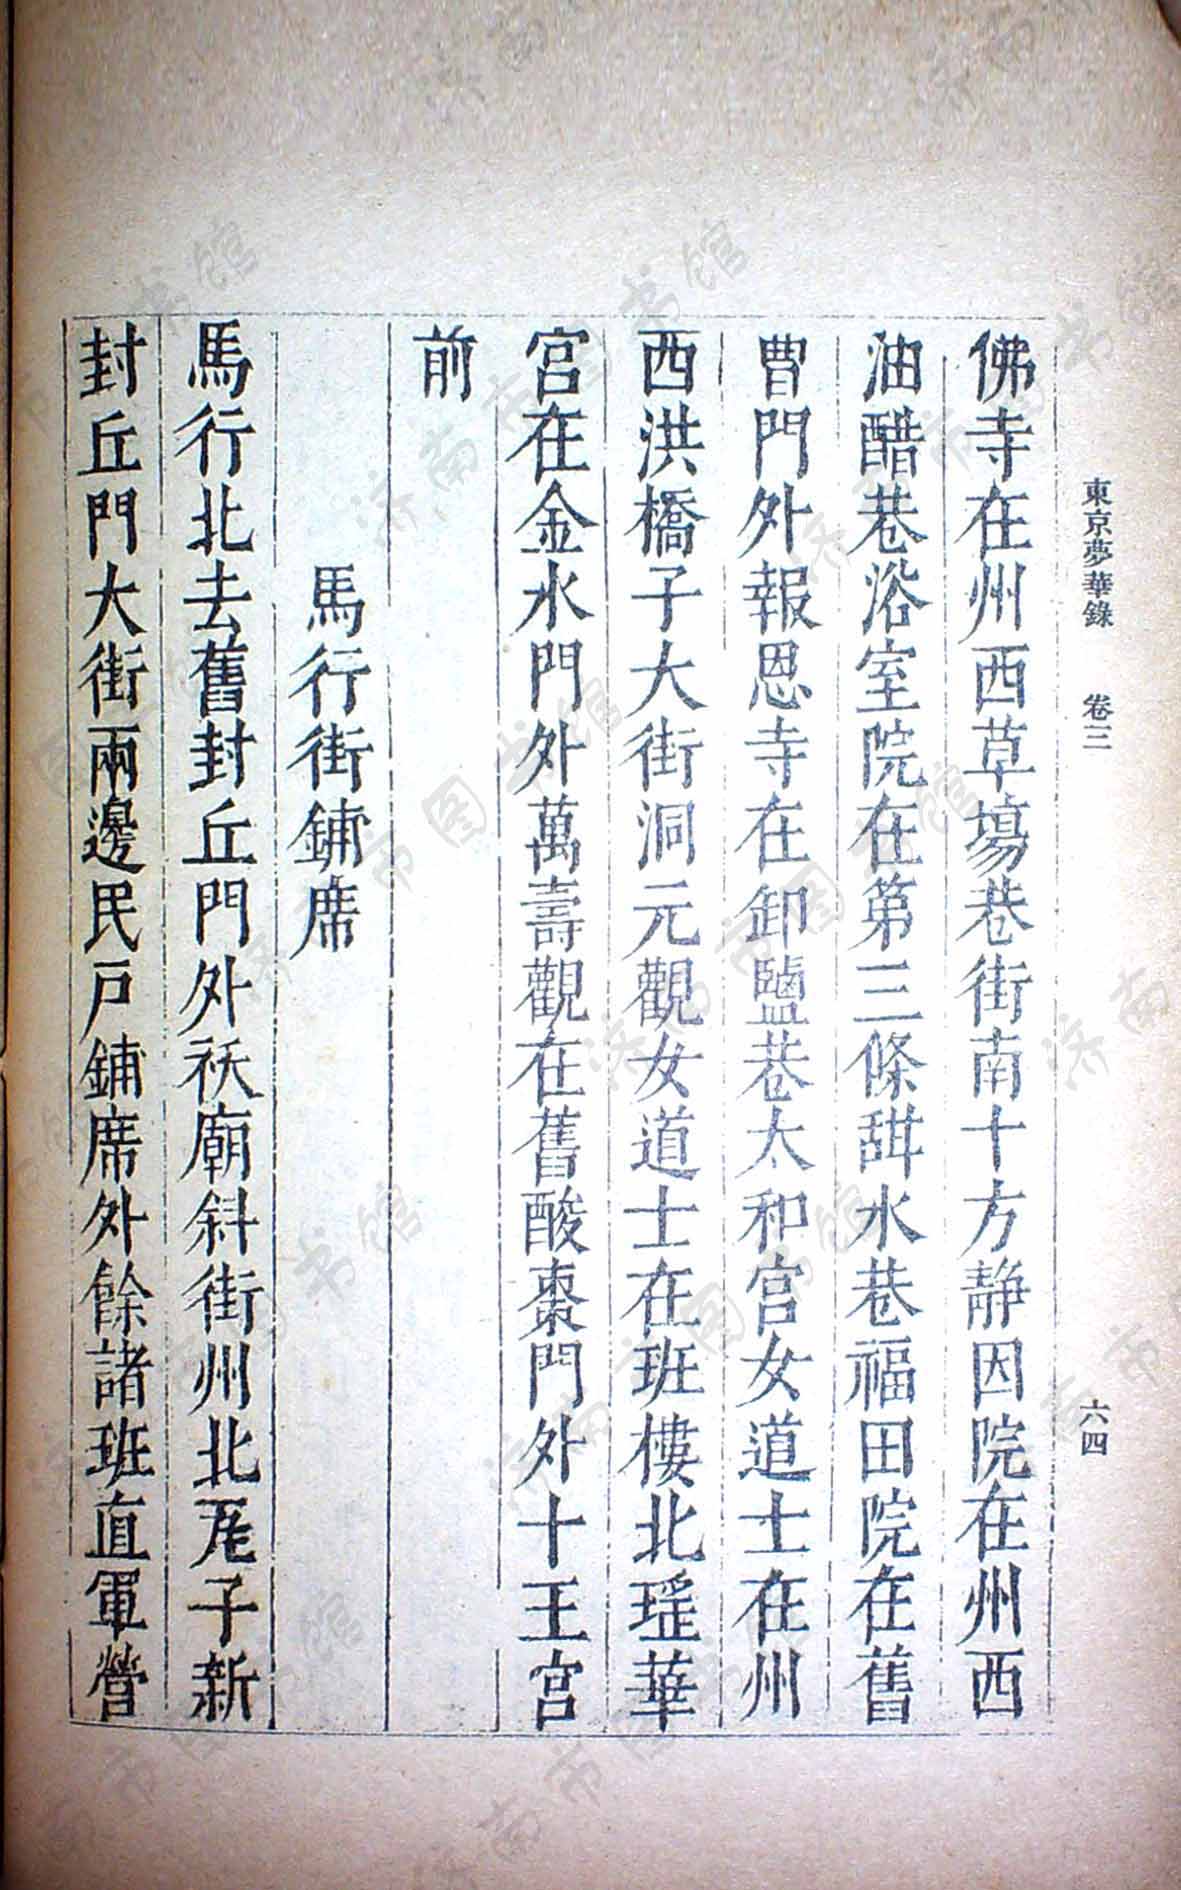 東京夢華錄　卷三
六四
佛寺在州西草場巷街南十方静因院在州西
油醋巷浴室院在第三條甜水巷福田院在舊
曹門外報恩寺在卸鹽巷太和宫女道士在州
西洪橋子大街洞元觀女道士在班樓北瑶華
宫在金水門外萬壽觀在舊酸棗門外十王宫
前
馬行街鋪席
馬行北去舊封丘門外祆廟斜街州北瓦子新
封丘門大街兩邊民户鋪席外餘諸班直軍營
济南市图书馆